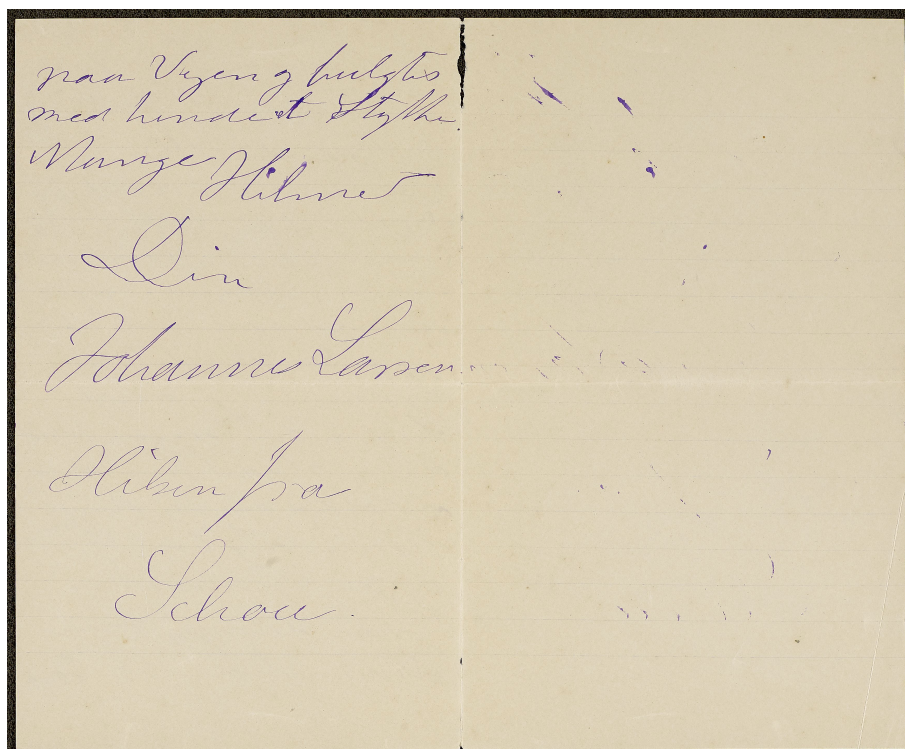 paa Vejen og
med hundert Stykke
Mange Hilsner
Din
Johannes Larsen
Hilsen fra
Schou.